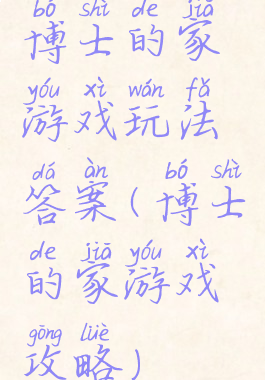 bó shì de jiā
博士的家
yóu xì wán fǎ
游戏玩法
dá àn bó shì
答案(博士
de jiā yóu xì
的家游戏
gōng lüè
攻略)